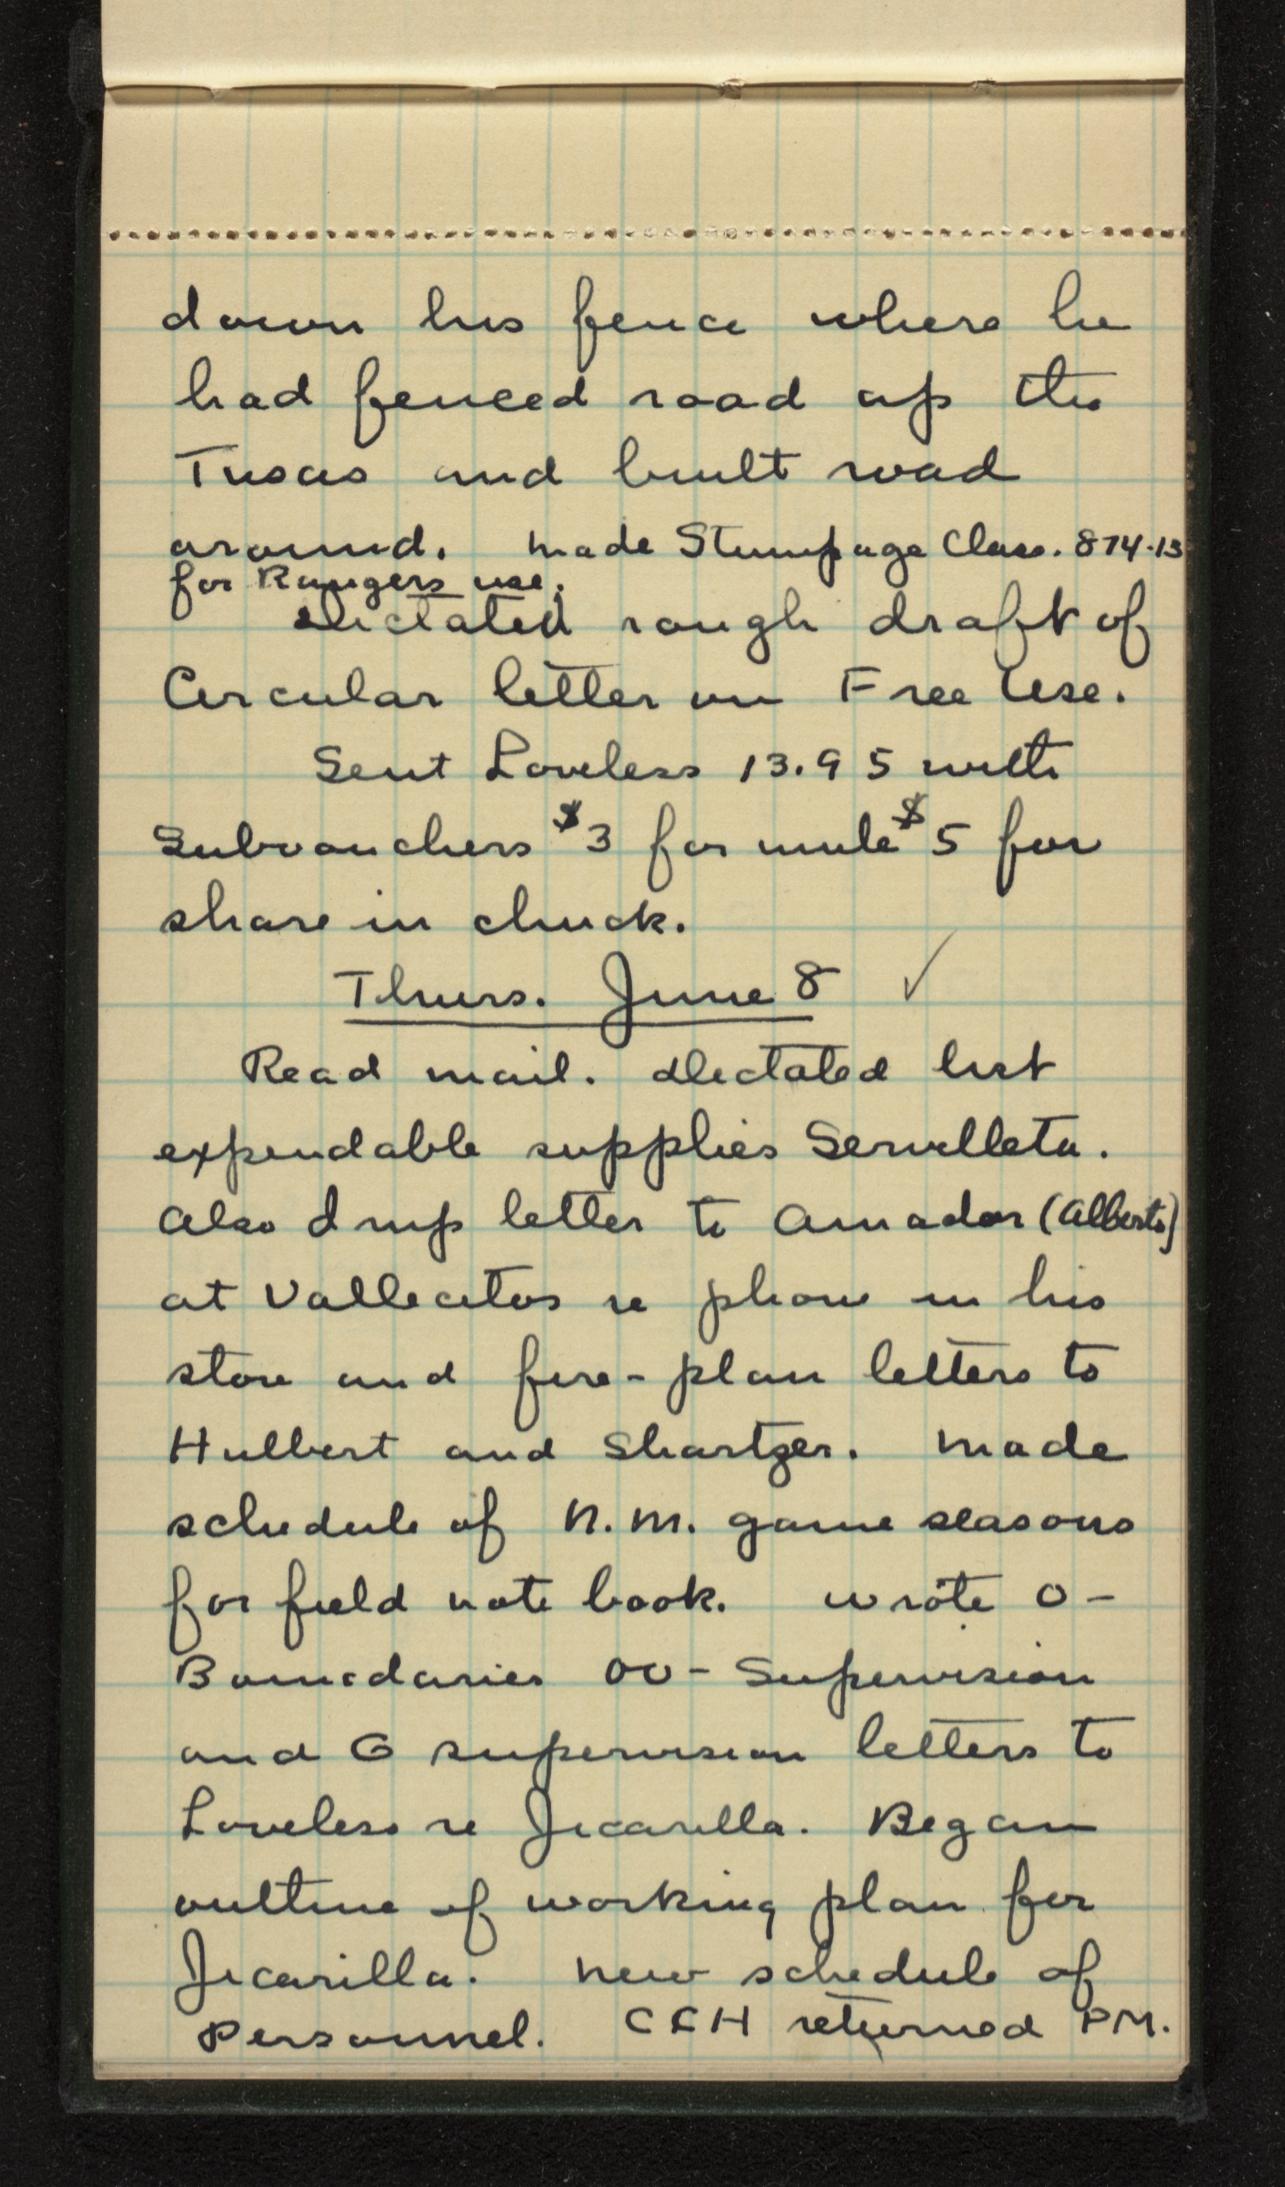 down his fence where he
had fenced road up the
Tusas and built road
around. Made Stumpage Class. 874-13
for Rangers use.
Dictated rough draft of
Circular letter on Free Use.
Sent Loveless 13.95 with
Subvouchers $3 for mule $5 for
share in chuck.
Thurs. June 8 ✓
Read mail. Dictated list
expendable supplies Servilleta.
Also imp letter to Amador (Alberto)
at Vallecitos re phone in his
store and fire-plan letters to
Hulbert and Shartzer. Made
schedule of N.M. game seasons
for field note book. Wrote O-
Boundaries OO- Supervision
and G supervision letters to
Loveless re Jicarilla. Began
outline of working plan for
Jicarilla. New schedule of
Personnel. CEH returned PM.